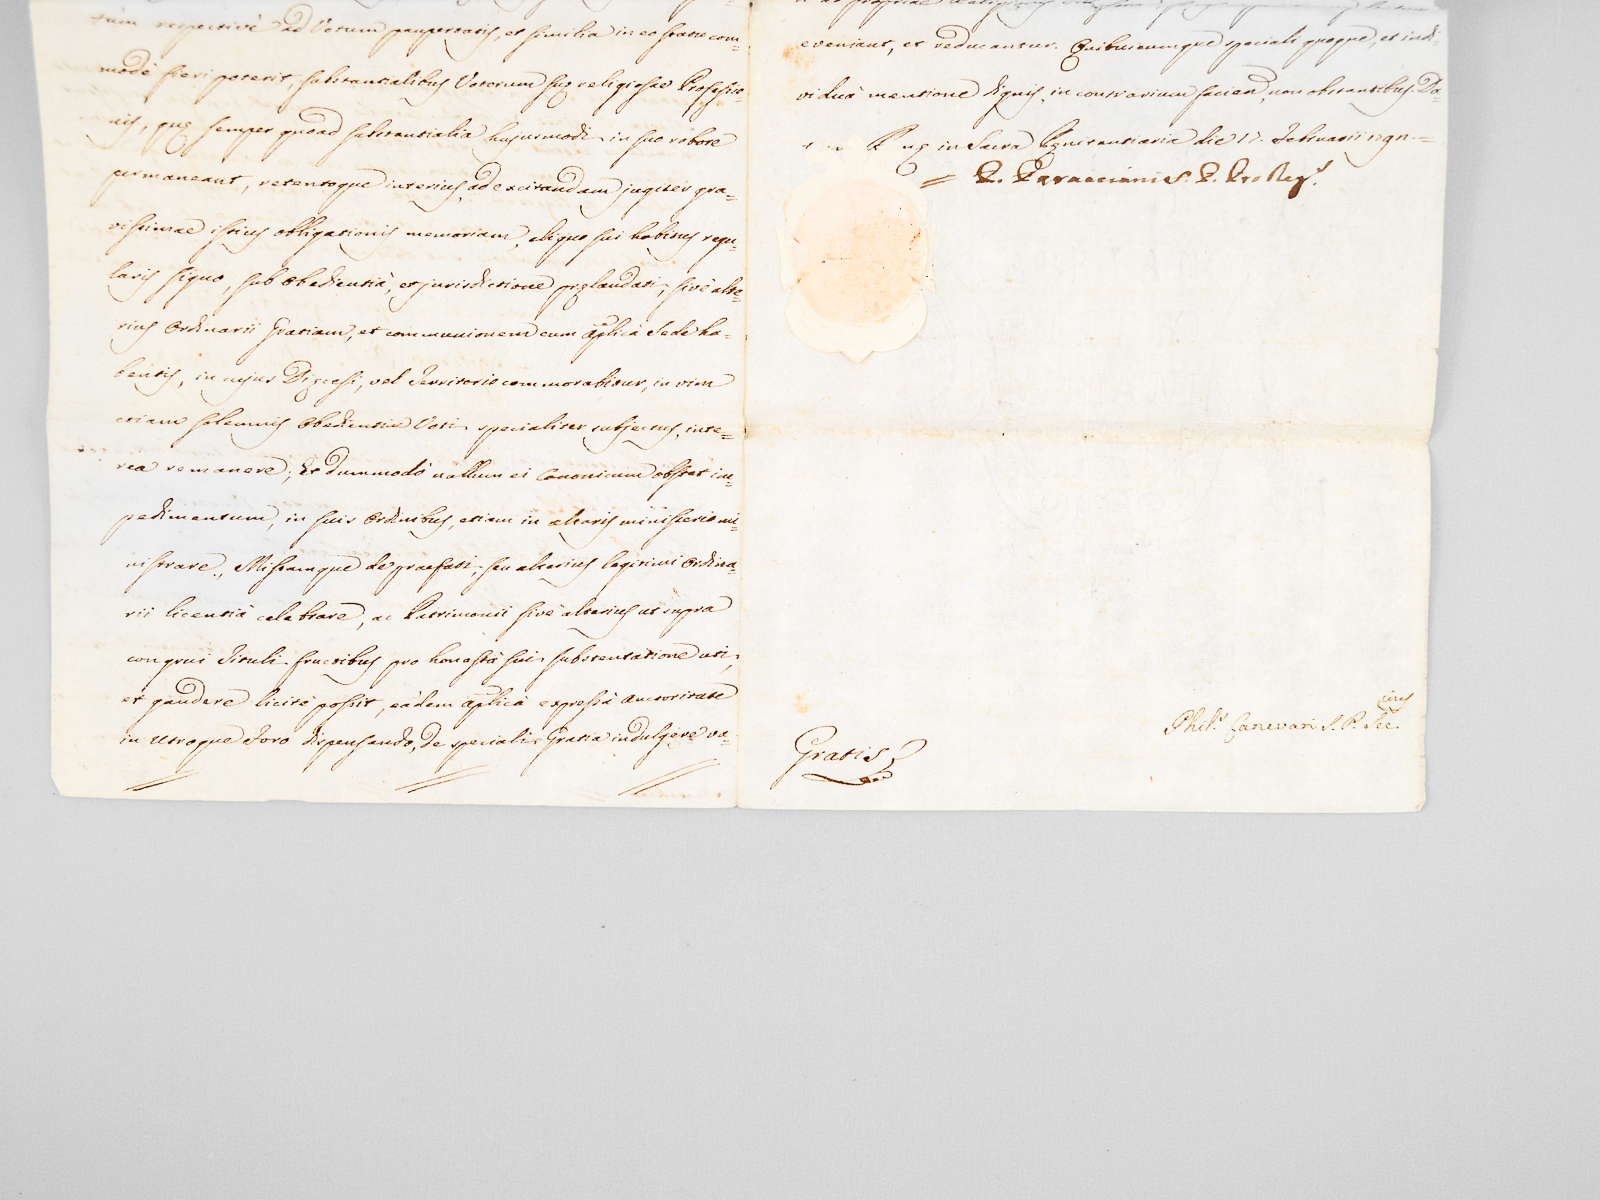 respectivè ad Votum paupertatis, et similia in eo statu com=
modè fieri poterit, substantialibus Votorum suę religiosae Professio=
nis, quę semper quoad substantialia hujusmodi in suo robore
permaneant, retentoque interius, ad excitandam jugiter gra=
vissimae istius obligationis memoriam, aliquo sui habitus regu=
laris signo, sub obedientià, et jurisdictione pręlaudati, sivè alte=
rius Ordinarii Gratiam, et communionem cum Aplicà Sede ha=
bentis, in cujus Dięcesi, vel Territorio commorabitur, in vim
etiam solemnis Obedientiae Voti specialiter subjectus, inte=
rea remanere; Et dummodò nullum ei Canonicum obstet im=
pedimentum, in suis Ordinibus, etiam in altaris ministerio mi=
nistrare, Missamque de praefati, seu alterius legitimi Ordina=
rii licentià celebrare, ac Patrimonii sivè alterius ut supra
congrui Tituli fructibus pro honestà sui substentatione uti,
et gaudere licitè possit, eàdem Aplicà expressà auctoritate
in utroque Foro dispensando, de speciali Gratia indulgere va=
eveniant, et reducantur. Quibuscumque speciali quoque, et indi=
viduà mentione dignis, in contrarium facien, non obstantibus. Da=
in Sacra Pęnitentiaria die 17. Februarii
= P. Paracciani S. P. Pro Reg.s
Gratis
Phil.s Canevari S. P. Sec.rius